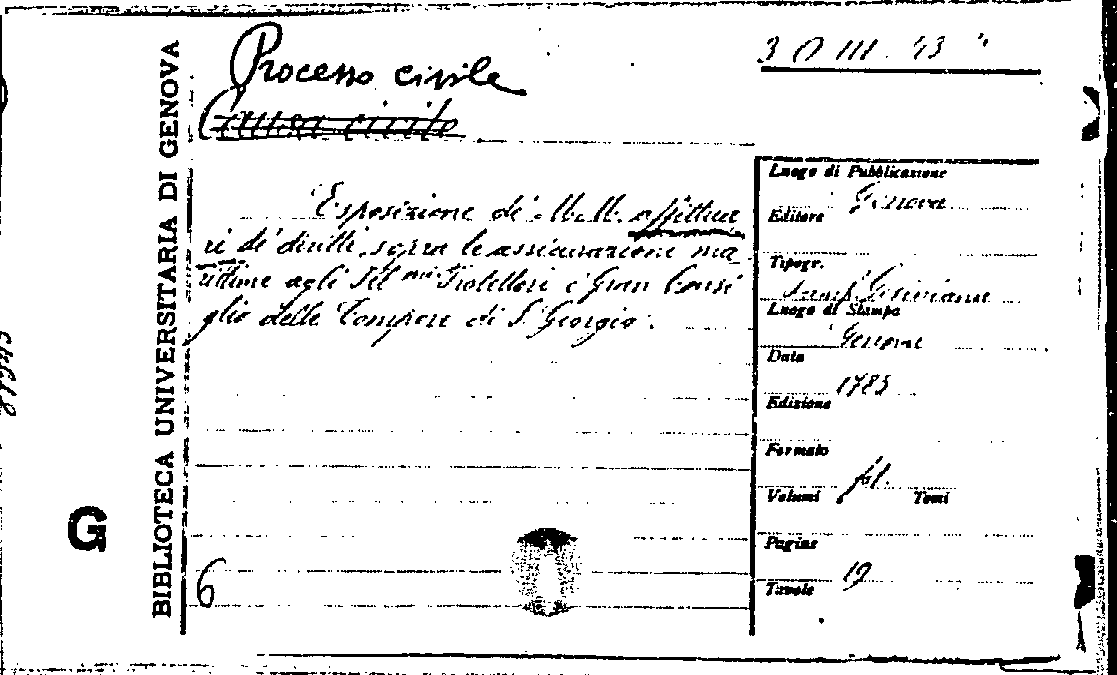 BIBLIOTECA UNIVERSITARIA DI GENOVA
G
3 O III. 43
Processo civile
Causa civile
Esposizione di M.M. affittua
ri di diritti sopra le assicurazione ma
rittime agli Ill.mi Protettori e Gran Consi
glio delle Compere di S. Giorgio.
6
Luogo di Pubblicazione
Genova
Editore
Tipogr.
Luogo di Stampa
Genova
Data
1785
Edizione
Formato
fol.
Volumi Tomi
Pagine
19
Tavole